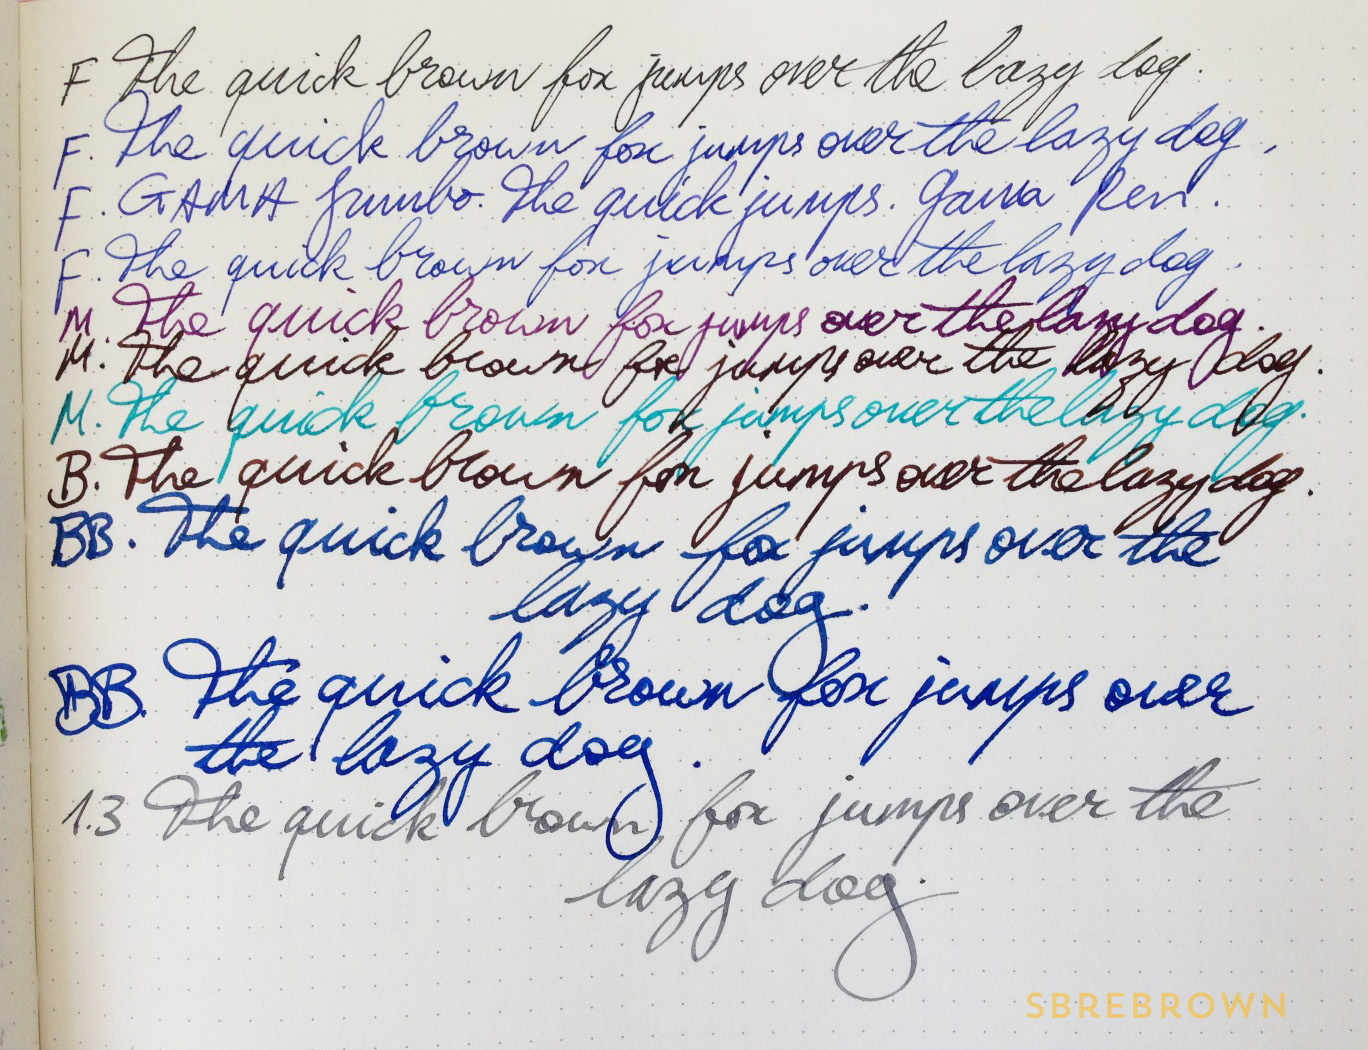 F The quick brown fox jumps over the lazy dog.
F. The quick brown fox jumps over the lazy dog.
F. GAMA Jumbo. The quick jumps. Gama Pen.
F. The quick brown fox jumps over the lazy dog.
M. The quick brown fox jumps over the lazy dog.
M. The quick brown fox jumps over the lazy dog.
M. The quick brown fox jumps over the lazy dog.
B. The quick brown fox jumps over the lazy dog.
BB. The quick brown fox jumps over the
lazy dog.
BB. The quick brown fox jumps over
the lazy dog.
1.3 The quick brown fox jumps over the
lazy dog.
SBREBROWN